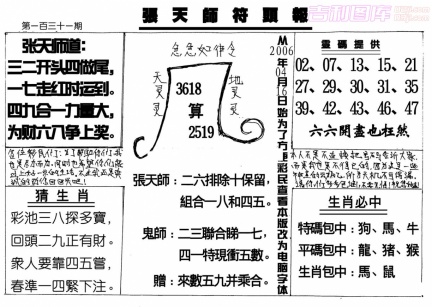 第一百三十一期
張天師符頭報
吉利图库
张天师道：
三二开头四做尾，
一七走红时运到。
四九合一力量大，
为财六八争上奖。
急急如律令
天灵灵
地灵灵
3618
算
2519
从2006年04月16日始为了方便彩民查看本版改为电脑字体
靈碼提供
02、07、13、15、21
27、29、30、31、35
39、42、43、46、47
六六開盡也枉然
猜生肖
彩池三八探多寶，
回頭二九正有財。
衆人要靠四五當，
春準一四緊下注。
張天師：二六排除十保留，
組合一八和四五。
鬼師：二三聯合睇一七，
四一特現衝五數。
贈：來數五九并乘合。
生肖必中
特碼包中：狗、馬、牛
平碼包中：龍、猪、猴
生肖包中：馬、鼠